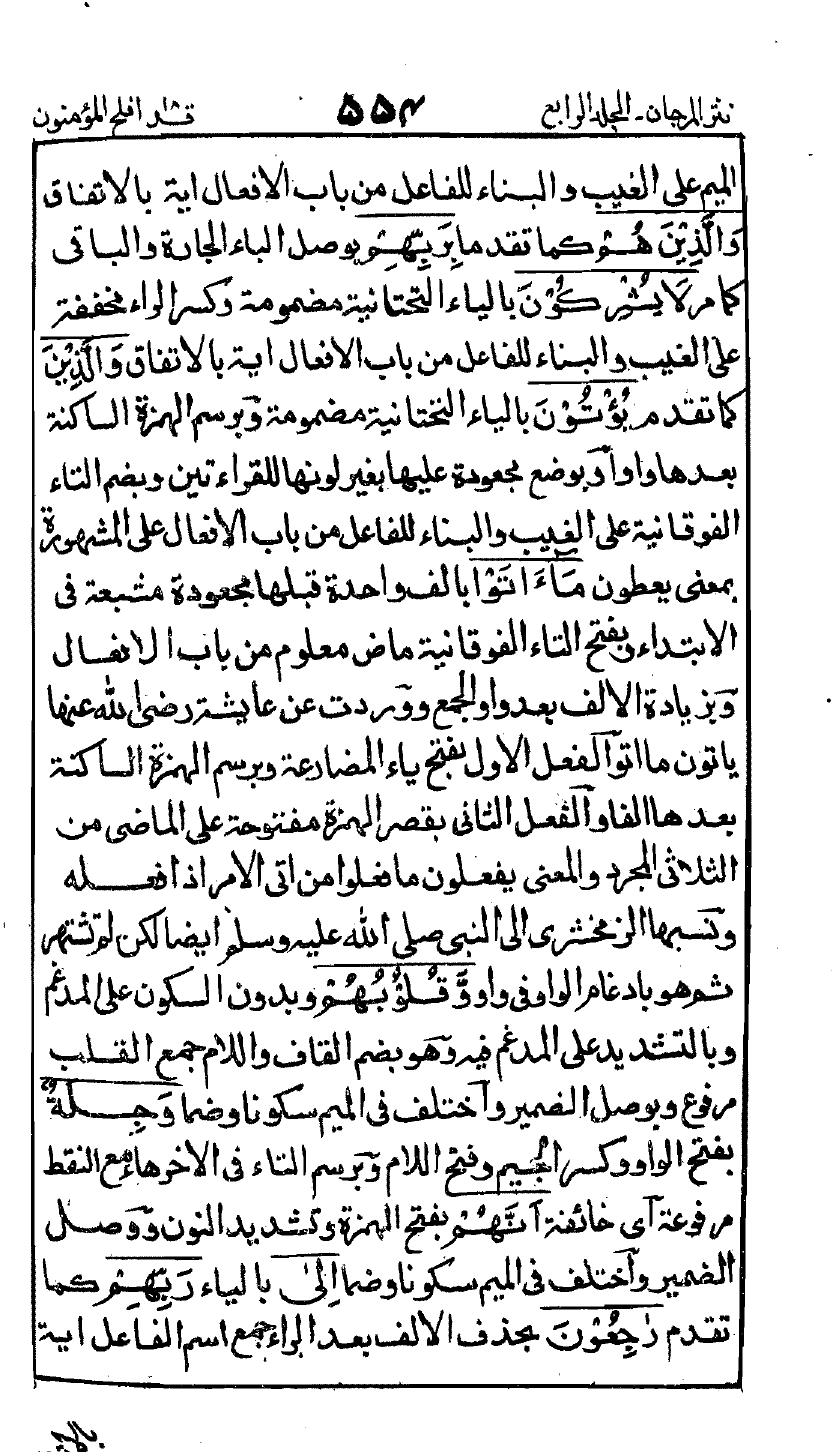 نثر المرجان ۔ المجلد الرابع ۵۵۴ قد افلح المؤمنون
الميم على الغيب والبناء للفاعل من باب الافعال اية بالاتفاق
وَالَّذِيْنَ هُمْ كما تقدم ما بِرَبِّهِمْ بوصل الباء الجارة والباقى
كما مر لَا يُشْرِكُوْنَ بالياء التحتانية مضمومة وكسر الراء مخففة
على الغيب والبناء للفاعل من باب الافعال اية بالاتفاق وَالَّذِيْنَ
كما تقدم يُؤْتُوْنَ بالياء التحتانية مضمومة وبرسم الهمزة الساكنة
بعدها واوا وبوضع مجعودة عليها بغير لونها للقراءتين وبضم التاء
الفوقانية على الغيب والبناء للفاعل من باب الافعال على المشهورة
بمعنى يعطون مَاءَ اتَوْا بالف واحدة قبلها مجعودة مشبعة فى
الابتداء وبفتح التاء الفوقانية ماض معلوم من باب الافعال
وبزيادة الالف بعد واو الجمع ووردت عن عايشة رضى الله عنها
ياتون ما اتوا الفعل الاول بفتح ياء المضارعة وبرسم الهمزة الساكنة
بعدها الفا والفعل الثانى بقصر الهمزة مفتوحة على الماضى من
الثلاثى المجرد والمعنى يفعلون ما فعلوا من اتى الامر اذا فعله
ونسبها الزمخشرى الى النبى صلى الله عليه وسلم ايضا لكن لم تشتهر
ثم هو بادغام الواو فى واو وَّقُلُوْبُهُمْ وبدون السكون على المدغم
وبالتشديد على المدغم فيه وهو بضم القاف واللام جمع القلب
مرفوع وبوصل الضمير واختلف فى الميم سكونا وضما وَجِلَةٌ
بفتح الواو وكسر الجيم وفتح اللام وبرسم التاء فى الاخر هاء مع النقط
مرفوعة اى خائفة اَنَّهُمْ بفتح الهمزة وتشديد النون ووصل
الضمير واختلف فى الميم سكونا وضما اِلىٰ بالياء رَبِّهِمْ كما
تقدم رٰجِعُوْنَ بحذف الالف بعد الراء جمع اسم الفاعل اية